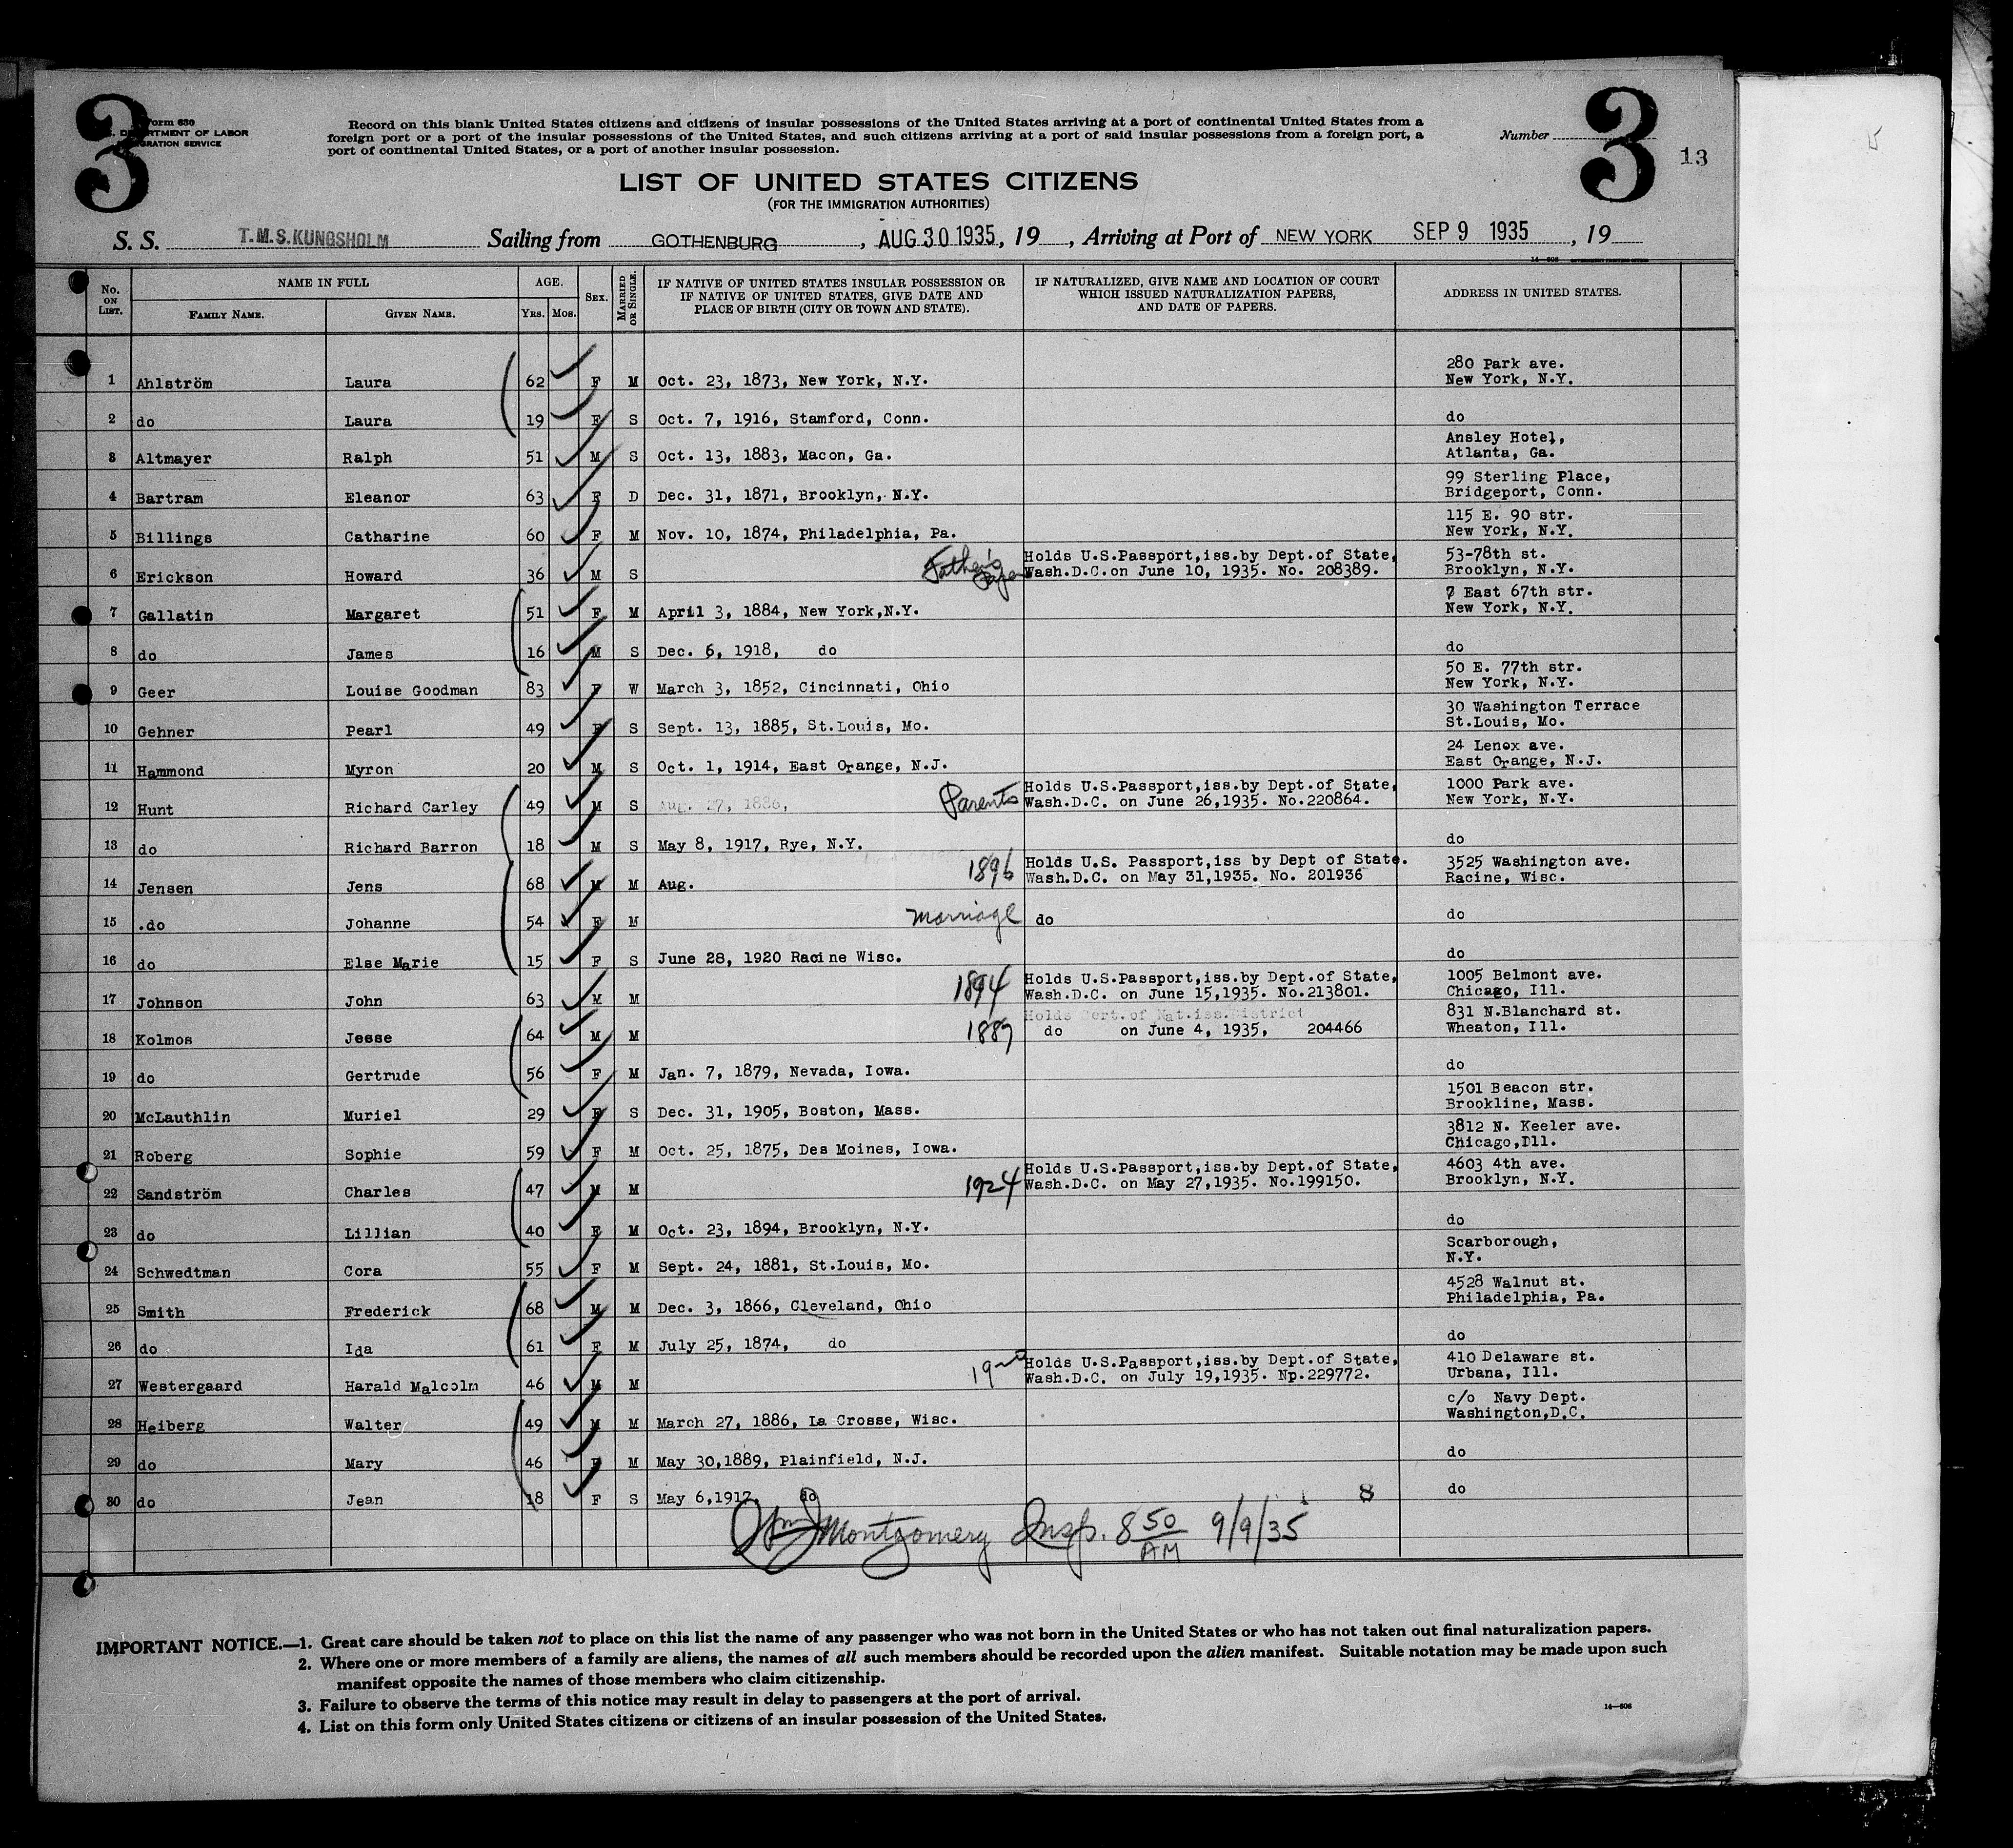 3
Form 630
DEPARTMENT OF LABOR
IMMIGRATION SERVICE
Record on this blank United States citizens and citizens of insular possessions of the United States arriving at a port of continental United States from a
foreign port or a port of the insular possessions of the United States, and such citizens arriving at a port of said insular possessions from a foreign port, a
port of continental United States, or a port of another insular possession.
Number
3
13
LIST OF UNITED STATES CITIZENS
(FOR THE IMMIGRATION AUTHORITIES)
S. S. T.M.S. KUNGSHOLM Sailing from GOTHENBURG, AUG 30 1935, 19 , Arriving at Port of NEW YORK SEP 9 1935, 19
No. ON LIST. NAME IN FULL FAMILY NAME. GIVEN NAME. AGE. YRS. MOS. SEX. MARRIED OR SINGLE. IF NATIVE OF UNITED STATES INSULAR POSSESSION OR IF NATIVE OF UNITED STATES, GIVE DATE AND PLACE OF BIRTH (CITY OR TOWN AND STATE). IF NATURALIZED, GIVE NAME AND LOCATION OF COURT WHICH ISSUED NATURALIZATION PAPERS, AND DATE OF PAPERS. ADDRESS IN UNITED STATES.
1 Ahlström Laura 62 F M Oct. 23, 1873, New York, N.Y. 280 Park ave. New York, N.Y.
2 do Laura 19 F S Oct. 7, 1916, Stamford, Conn. do
3 Altmayer Ralph 51 M S Oct. 13, 1883, Macon, Ga. Ansley Hotel, Atlanta, Ga.
4 Bartram Eleanor 63 F D Dec. 31, 1871, Brooklyn, N.Y. 99 Sterling Place, Bridgeport, Conn.
5 Billings Catharine 60 F M Nov. 10, 1874, Philadelphia, Pa. 115 E. 90 str. New York, N.Y.
6 Erickson Howard 36 M S Father's Holds U.S.Passport,iss.by Dept.of State, Wash.D.C.on June 10, 1935. No. 208389. 53-78th st. Brooklyn, N.Y.
7 Gallatin Margaret 51 F M April 3, 1884, New York,N.Y. 7 East 67th str. New York, N.Y.
8 do James 16 M S Dec. 6, 1918, do do
9 Geer Louise Goodman 83 F W March 3, 1852, Cincinnati, Ohio 50 E. 77th str. New York, N.Y.
10 Gehner Pearl 49 F S Sept. 13, 1885, St.Louis, Mo. 30 Washington Terrace St.Louis, Mo.
11 Hammond Myron 20 M S Oct. 1, 1914, East Orange, N.J. 24 Lenox ave. East Orange, N.J.
12 Hunt Richard Carley 49 M S Aug. 27, 1886, Parents Holds U.S.Passport,iss.by Dept.of State, Wash.D.C. on June 26,1935. No.220864. 1000 Park ave. New York, N.Y.
13 do Richard Barron 18 M S May 8, 1917, Rye, N.Y. do
14 Jensen Jens 68 M M Aug. 1896 Holds U.S. Passport,iss by Dept of State. Wash.D.C. on May 31,1935. No. 201936 3525 Washington ave. Racine, Wisc.
15 .do Johanne 54 F M marriage do do
16 do Else Marie 15 F S June 28, 1920 Racine Wisc. do
17 Johnson John 63 M M 1894 Holds U.S.Passport,iss.by Dept.of State, Wash.D.C. on June 15,1935. No.213801. 1005 Belmont ave. Chicago, Ill.
18 Kolmos Jesse 64 M M 1889 Holds Cert.of Nat.iss.District do on June 4, 1935, 204466 831 N.Blanchard st. Wheaton, Ill.
19 do Gertrude 56 F M Jan. 7, 1879, Nevada, Iowa. do
20 McLauthlin Muriel 29 F S Dec. 31, 1905, Boston, Mass. 1501 Beacon str. Brookline, Mass.
21 Roberg Sophie 59 F M Oct. 25, 1875, Des Moines, Iowa. 3812 N. Keeler ave. Chicago,Ill.
22 Sandström Charles 47 M M 1924 Holds U.S.Passport,iss.by Dept.of State, Wash.D.C. on May 27,1935. No.199150. 4603 4th ave. Brooklyn, N.Y.
23 do Lillian 40 F M Oct. 23, 1894, Brooklyn, N.Y. do
24 Schwedtman Cora 55 F M Sept. 24, 1881, St.Louis, Mo. Scarborough, N.Y.
25 Smith Frederick 68 M M Dec. 3, 1866, Cleveland, Ohio 4528 Walnut st. Philadelphia, Pa.
26 do Ida 61 F M July 25, 1874, do do
27 Westergaard Harald Malcolm 46 M M Holds U.S.Passport,iss.by Dept.of State, Wash.D.C. on July 19,1935. Np.229772. 410 Delaware st. Urbana, Ill.
28 Heiberg Walter 49 M M March 27, 1886, La Crosse, Wisc. c/o Navy Dept. Washington,D.C.
29 do Mary 46 F M May 30,1889, Plainfield, N.J. do
30 do Jean 18 F S May 6,1917 do 8 do
Montgomery Insp. 8 50 AM 9/9/35
IMPORTANT NOTICE.—1. Great care should be taken not to place on this list the name of any passenger who was not born in the United States or who has not taken out final naturalization papers.
2. Where one or more members of a family are aliens, the names of all such members should be recorded upon the alien manifest. Suitable notation may be made upon such
manifest opposite the names of those members who claim citizenship.
3. Failure to observe the terms of this notice may result in delay to passengers at the port of arrival.
4. List on this form only United States citizens or citizens of an insular possession of the United States.
14—608